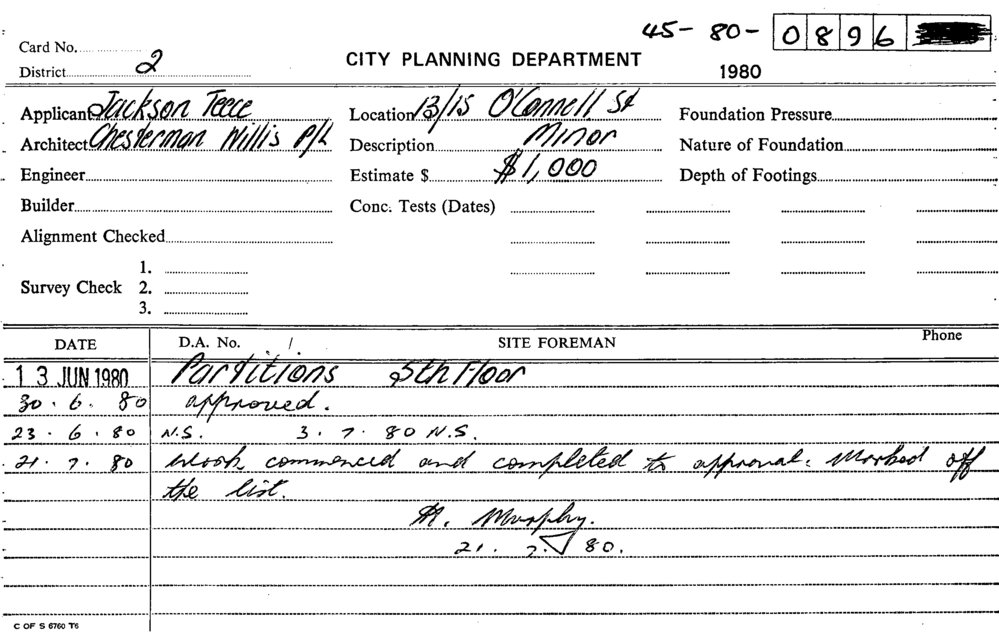 45- 80- 0896
Card No.
District 2
CITY PLANNING DEPARTMENT
1980
Applicant Jackson Teece
Location 13/15 O'Connell St
Foundation Pressure
Architect Chesterman Willis P/L
Description Minor
Nature of Foundation
Engineer
Estimate $ $1,000
Depth of Footings
Builder
Conc. Tests (Dates)
Alignment Checked
Survey Check 1.
2.
3.
DATE D.A. No. / SITE FOREMAN Phone
13 JUN 1980 Partitions 5th Floor
30. 6. 80 approved.
23 . 6 . 80 N.S. 3. 7. 80 N.S.
21. 7. 80 Work commenced and completed to approval. Marked off
the list.
M. Murphy.
21. 7. 80.
C OF S 6760 T6